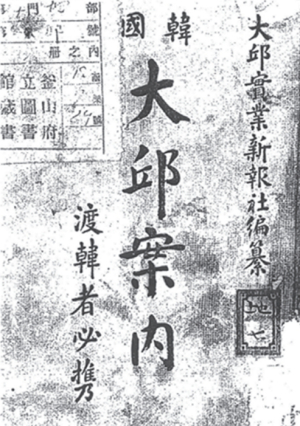 大邱實業新報社編纂
韓國
大邱案内
渡韓者必携
釜山府
立圖書
館蔵書